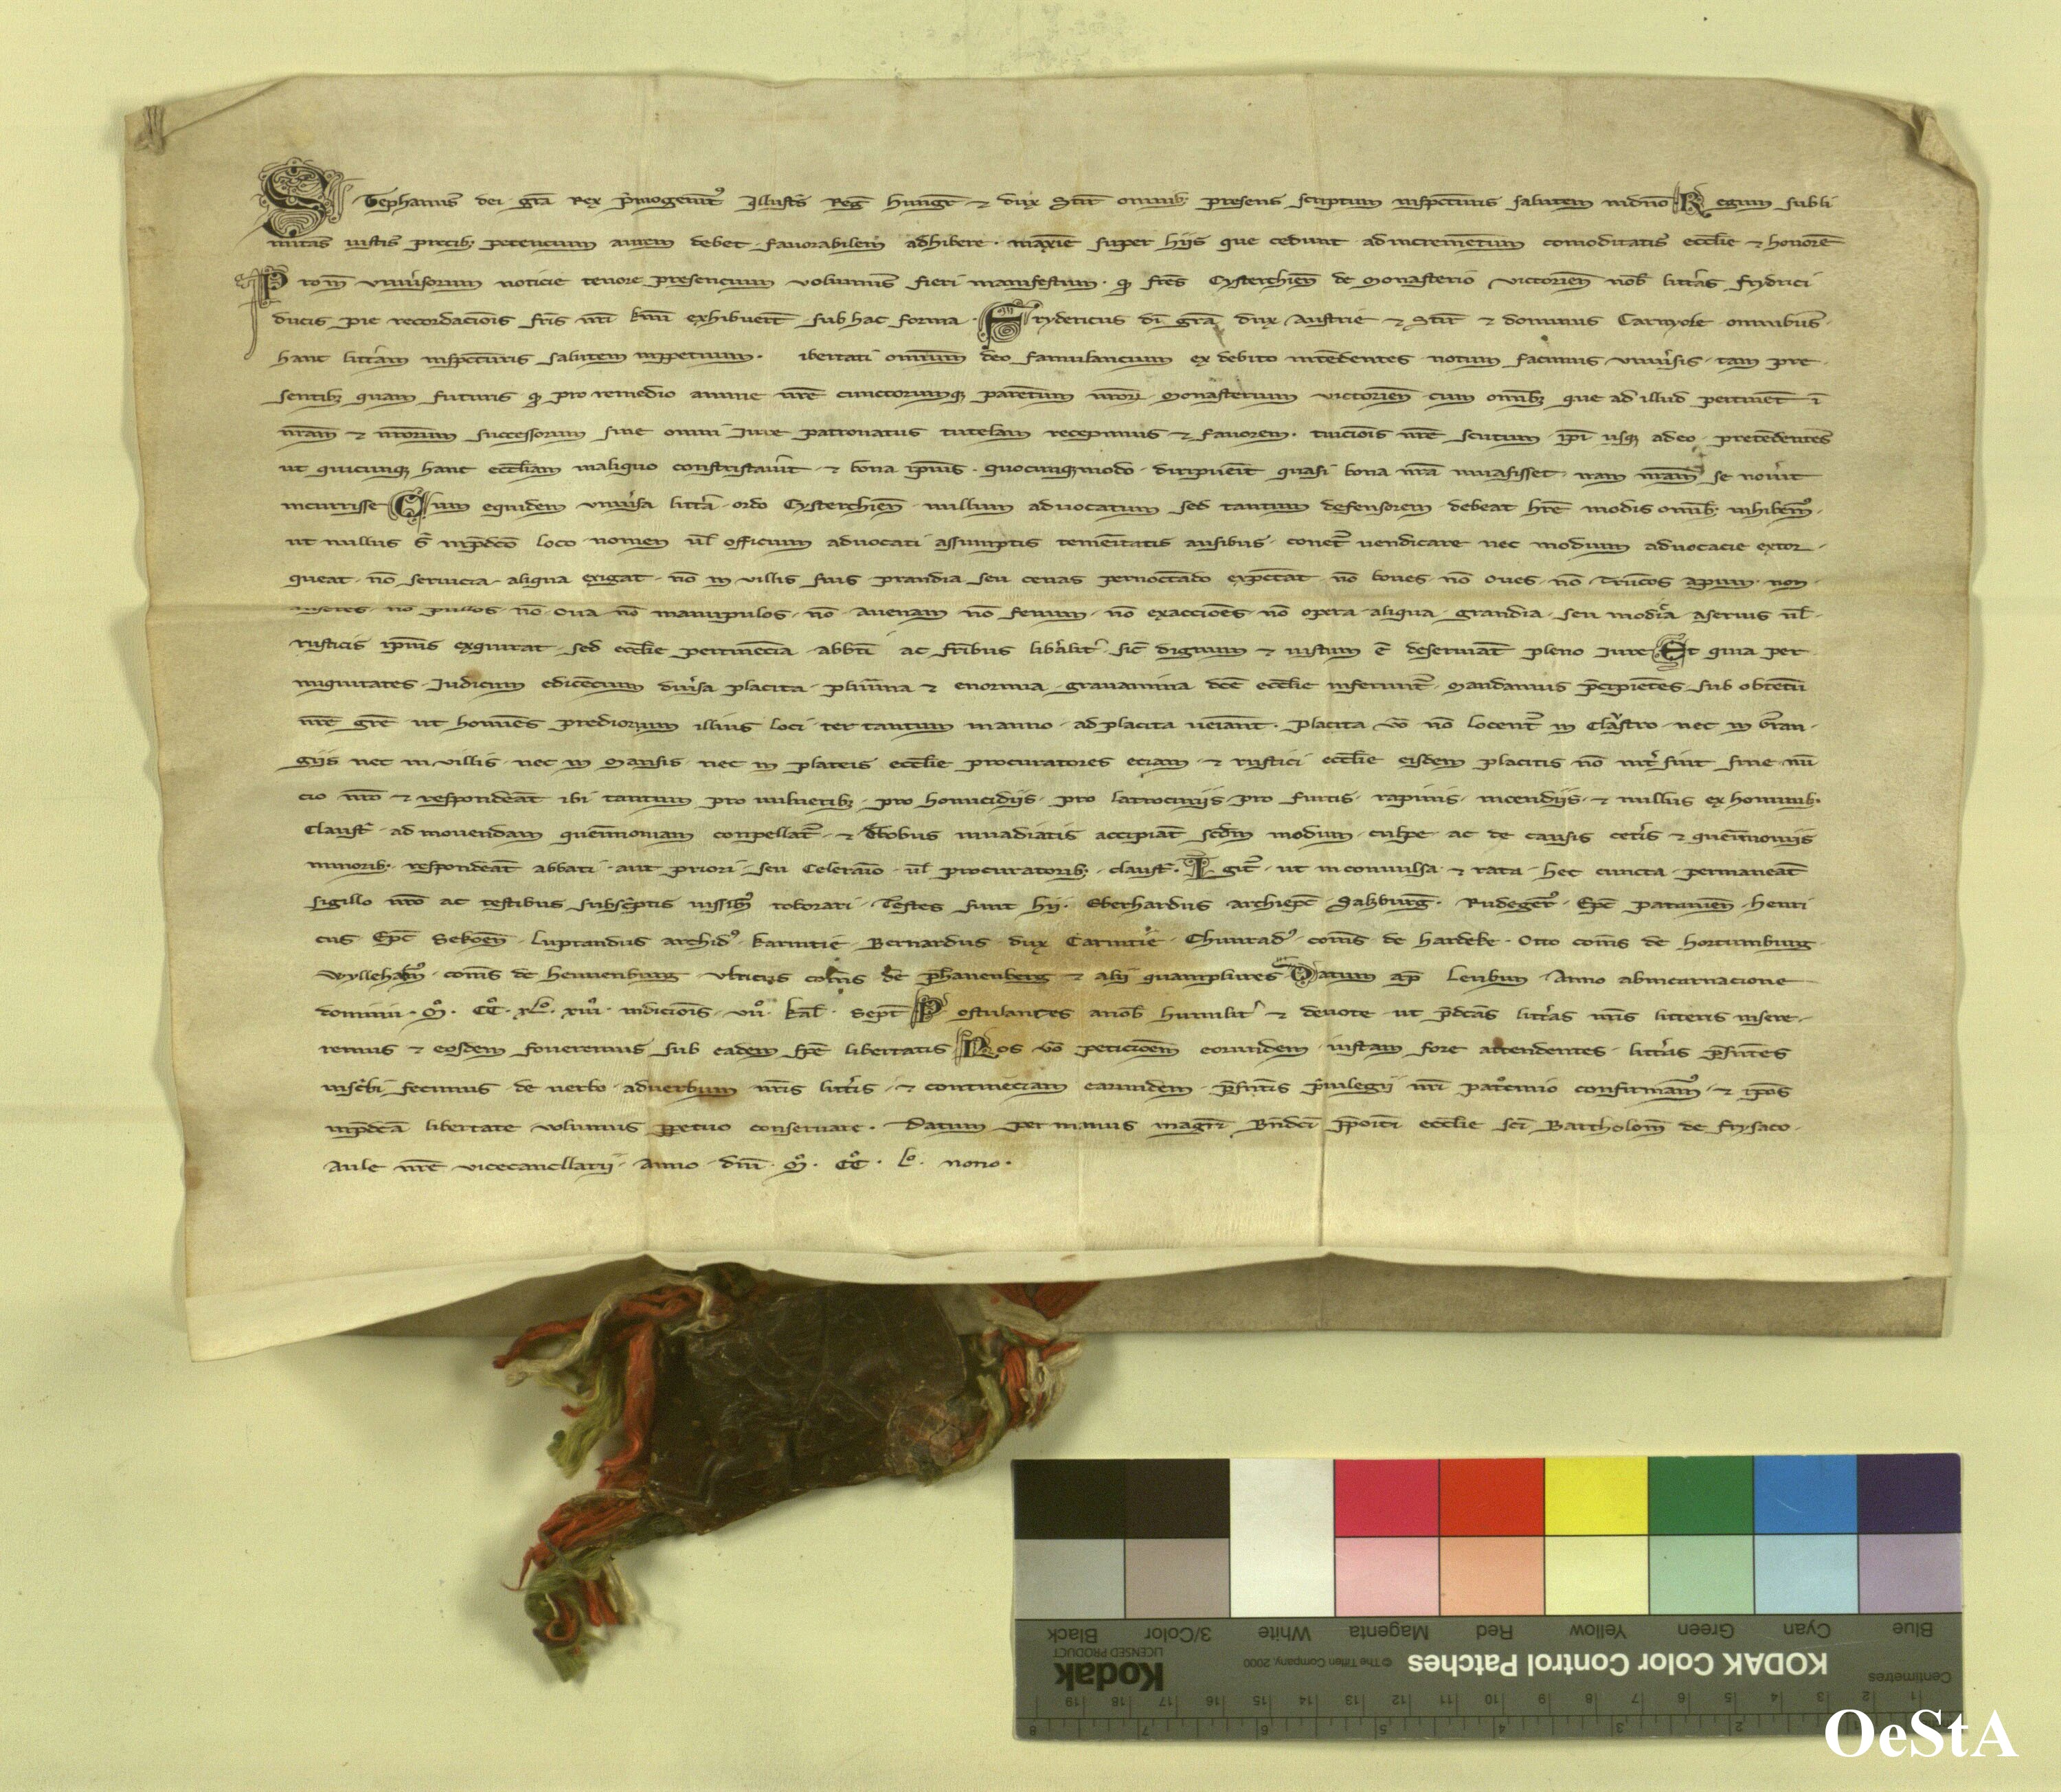 Stephanus dei gr̄a Rex p̄mogenit᷒ Illustr̄ Reg̅ Hungr̄ ⁊ dux Stir̄ omnib; presens scriptum inspecturis salutem in dn̄o Regum subli
mitas iustis precib; petencium aurem debet fauorabilem adhibere · maxīe super hiis que cedunt ad incremētum comoditatis eccl̄ie ⁊ honorē
Pro īn vniu̾sorum noticie tenore presencium volumus fieri manifestum · q̄ fr̄es Cysterchien̄ de Monasterio victorien̄ nob̄ litt̾as fryd̾ici
ducis pie recordaciōis fr̄is nr̄i km̄i exhibuer̄t sub hac forma · Frydericus dī gr̄a dux Austrie ⁊ Stir̄ ⁊ dominus Carnyole omnibus ·
hanc litt̾am inspecturis salutem inp̄petuum · ibertati omnium deo famulancium ex debito intēdentes notum facimus vniu̾sis · tam pre ·
sentib; quam futuris q̄ pro remedio anime nr̄e cunctorumq; parētum nr̄or̄ Monasterium victorien̄ cum omīb; que ad illud pertinēt ī
nr̄am ⁊ nr̄orum successorum sine omni Iure patronatus tutelam recepimus ⁊ fauorem · tuiciōis nr̄e scutum ip̄i usq; adeo pretēdentes
ut quicunq; hanc eccl̄iam in aliquo constristau̾it ⁊ bona ip̄ius · quocunq; modo diripuerit quasi bona nr̄a inuasisset iram nr̄am se nou̾it
incurrisse Cum equidem vniu̾sa litt̾a ordo Cysterchien̄ nullum aduocatum sed tantum defensorem debeat hr̄e modis omīb; inhibem᷒ ·
ut nullus ī inp̄dc̄o loco nomen ul̄ officium aduocati assumptis temeritatis ausibus · conet᷑ uendicare nec modum aduocacie extor ·
queat · nō seruicia aliqua exigat · nō in villis suis prandia seu cenas pernoctādo expectat nō boues nō oues · nō truncos apum · non
anseres nō pullos nō oua nō manipulos · nō auenam nō fenum · nō exacciōes · nō opera aliqua grandia seu modica a seruis ul̄ ·
rusticis ip̄ius exquirat sed eccl̄ie pertinēcia abb̄ti ac fr̄ibus lib̾alit̾ sic̄ dignum ⁊ iustum ē deseruiāt pleno iure Et quia per
iniquitates Iudicum edicēcium diu̾sa placita plurima ⁊ enormia grauamina dc̄e eccl̄ie inferunt᷑ · Mandamus p̄cipiētes sub obtētu
nr̄e gr̄e ut homines prediorum illius loci ter tantum in anno · ad placita ueniant · placita v̄o nō locent᷑ in Claustro nec in Gran ·
giis nec in villis nec in Mansis nec in plateis eccl̄ie procuratores eciam ⁊ rustici eccl̄ie eisdem placitis nō int̾sint sine nū
cio nr̄o ⁊ respondeāt ibi tantum pro uulneribꝫ · pro homicidiis · pro latrociniis · pro furtis · rapinis · incendiis · ⁊ nullus ex hominib; ·
Claustr̄ · ad mouendam querimoniam conpellat᷑ · ⁊ uadiatis accipiāt scd̄m modum culpe · ac de causis cet̾is ⁊ querimoniis
minorib; · respondeāt abbati · aut priori seu Celerario ul̄ procuratorib; · claustr̄ · Igit᷑ ut inconuulsa ⁊ rata hec cuncta permaneāt
sigillo nr̄o ac testibus subsc̄ptis iussim᷒ roborari · Testes sunt hii · Eberhardus archiepc̄ Salzburg̅ · Rudeger᷒ Epc̄ patauien̄ henri
cus Epc̄ Sekoen̄ Luprandus archid᷒ Karintie Bernardus dux Carintie Chunrad᷒ comes de Hardeke · Otto comes de Hortumburg
Wylleham᷒ comes de Heunenburg vlricus comes de phanenberg ⁊ alii quamplures Datum ap̄ Leubm Anno ab incarnacione
domini · M̊ · CC̊ · xl̊ · xiii̊ · indiciōis · vii̊ · kal̄ · Sept̄ Postulantes a nob̄ humilit̾ ⁊ deuote ut p̄dc̄as litt̾as nr̄is litteris insere ·
remus ⁊ eosdem foueremus sub eadem spē libertatis Nos v̄o peticiōem eorundem iustam fore attendentes · litt̾as p̄sentes
insc̄bi fecimus de uerbo ad uerbum nr̄is litt̾is · ⁊ continēciam earundem p̄sentis p̾uilegii nr̄i patrocinio confirmam᷒ ⁊ ip̄os
inp̄dc̄a libertate volumus p̄petuo conseruare · Datum per manus magr̄i Bn̄dc̄i p̄positi eccl̄ie sc̄i Bartholom̄ de frysaco ·
Aule nr̄e vicecancellarii · Anno dn̄i · M̊ · CC̊ · l̊ · nono ·
KODAK Color Control Patches
Kodak
LICENSED PRODUCT
© The Tiffen Company, 2000
Centimetres
Blue Cyan Green Yellow Red Magenta White 3/Color Black
1 2 3 4 5 6 7 8 9 10 11 12 13 14 15 16 17 18 19
2 3 4 5 6 7 8
OeStA